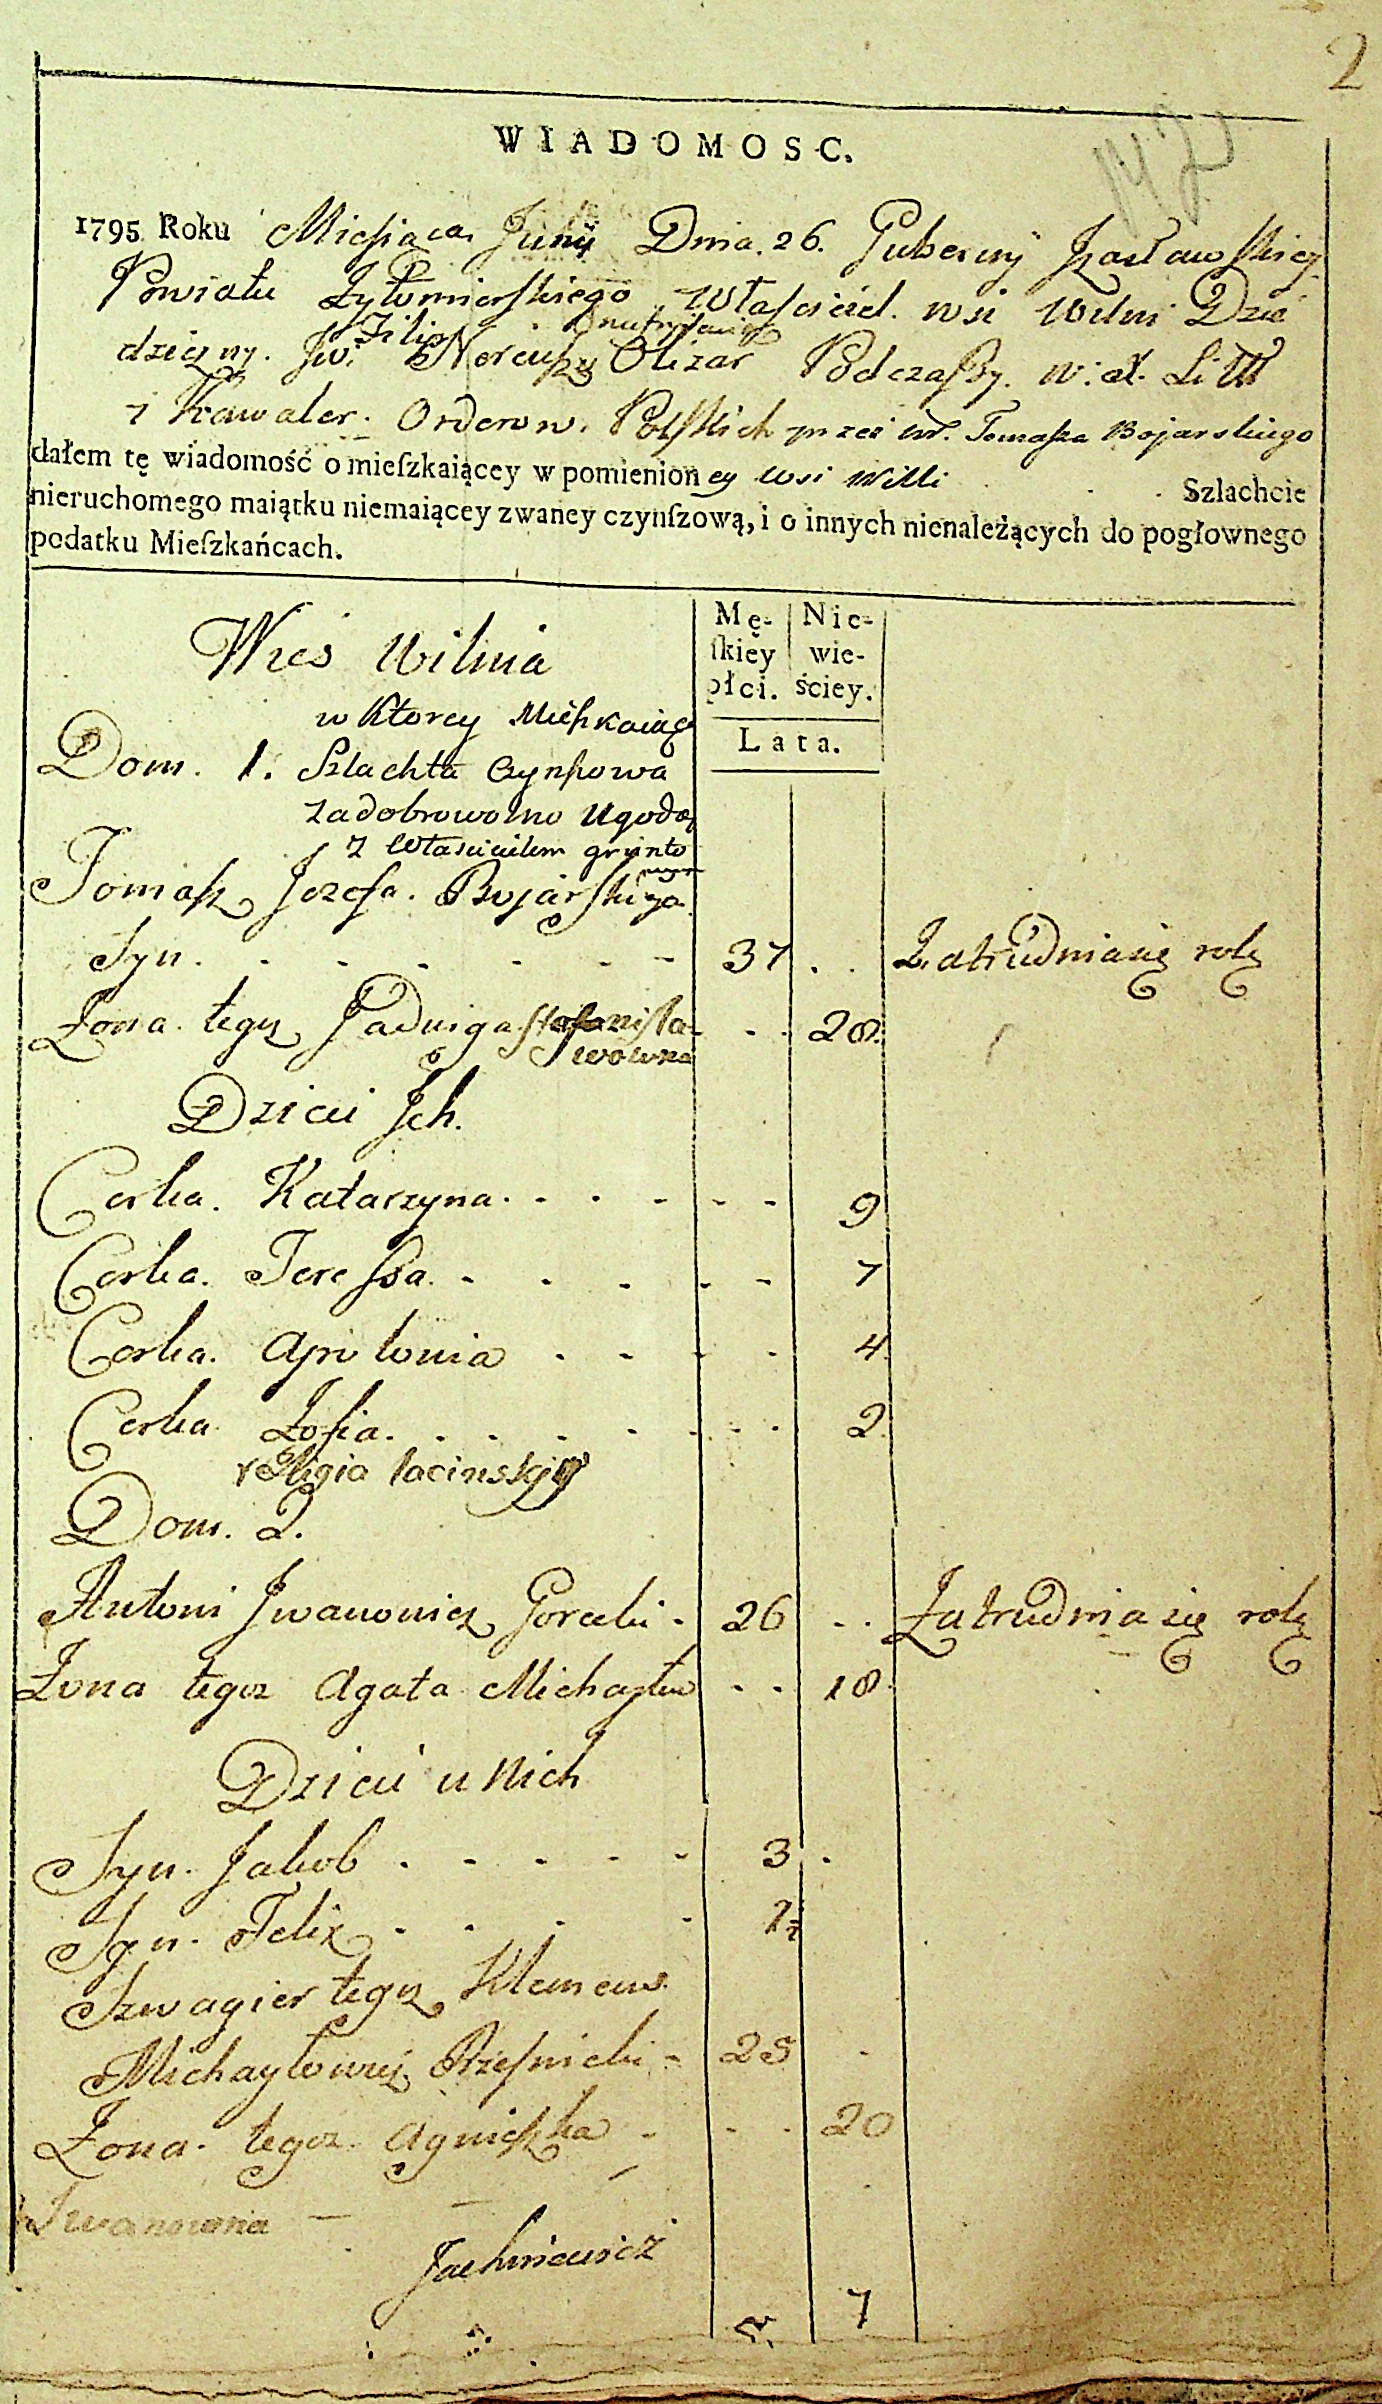 2
142
WIADOMOSC.
1795 Roku Miesiąca Junij Dnia. 26. Guberny Izasławskiey
Powiatu Zytomirskiego Własciciel. wsi Wilni Dzie
dziczny. Jw. Filip Nereusz Onufry Olizar Podczaszy. W: X. Litt
i Kawaler. Orderow. Polskich przez Ur. Tomasza Bojarskiego
dałem tę wiadomość o mieſzkaiącey w pomienioney wsi Willi Szlachcie
nieruchomego maiątku niemaiącey zwaney czynſzową, i o innych nienależących do pogłownego
podatku Mieſzkańcach.
Wieś Wilnia
Mę- Nie-
ſkiey wie-
płci. ściey.
w Ktorey Mieszkaiąca
Lata.
Dom. 1. Szlachta Czynszowa
za dobrowolno Ugodą
z Własicielem grunto
Tomasz Jozefa. Bojarskiego
Syn. 37 Zatrudnia się rolą
Zona. tegoż Jadwiga Stanisła- 28.
wowna
Dzieci Ich.
Corka. Katarzyna. 9
Corka. Teressa. 7
Corka. Apolonia 4
Corka Zofia. 2
religia łacinskiey
Dom. 2.
Antoni Iwanowicz Gorecki 26 Zatrudnia się rolą
Zona tegoz Agata Michayłow 18
Dzieci u Nich
Syn. Jakob 3
Syn. Felix
Szwagier tegoż Klemens
Michayłowicz Rzesnicki 25
Zona. tegoz. Agnieszka 20
Iwanowna
Jachniewicz
7